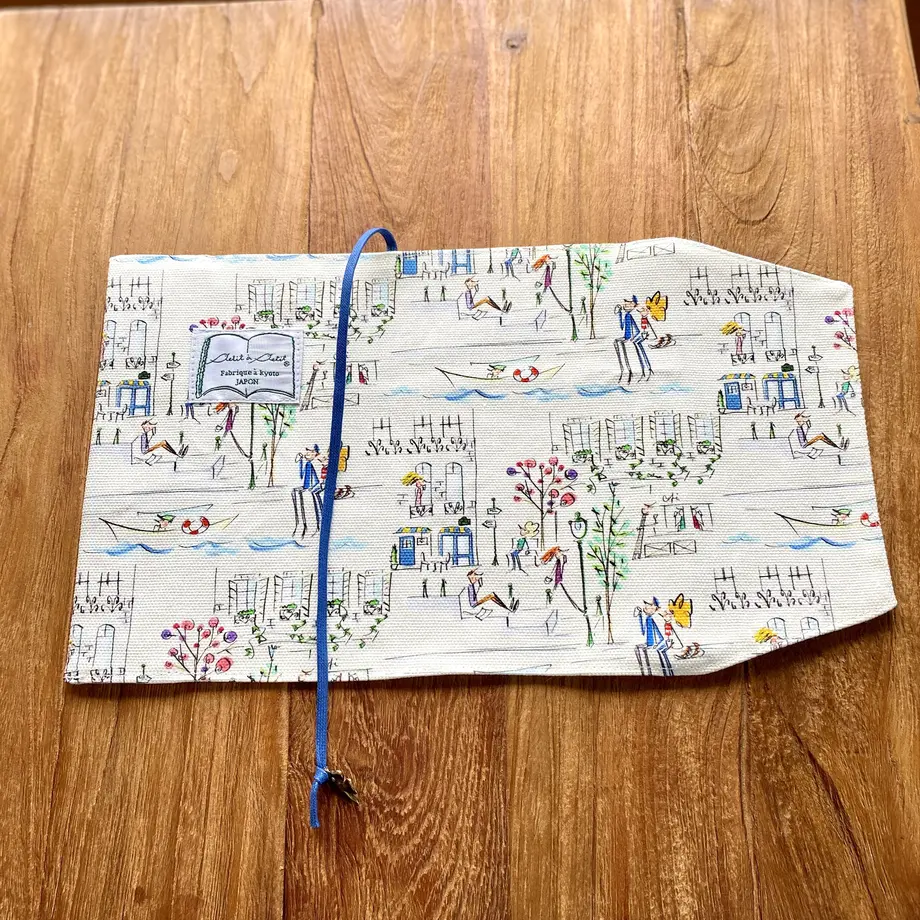 Petit à Petit®
Fabriqué à kyoto
JAPON